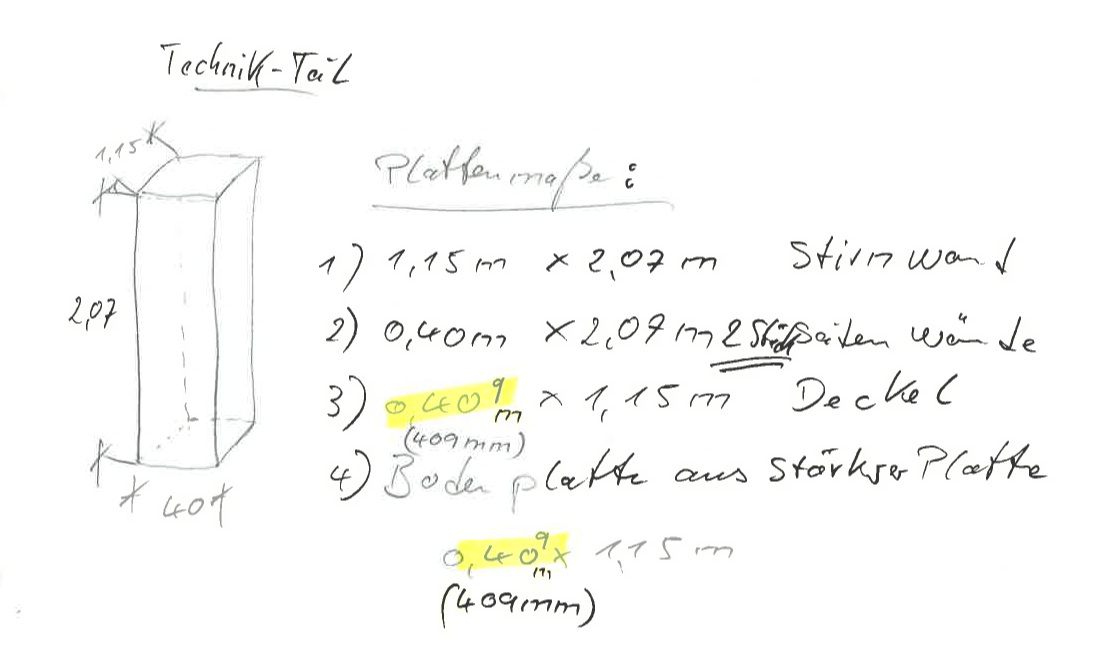 Technik-Teil
1,15
Plattenmaße:
2,07
1) 1,15 m x 2,07 m Stirnwand
2) 0,40 m x 2,07 m 2 Stück Seitenwände
3) 0,40⁹ m x 1,15 m Deckel
(409mm)
4) Bodenplatte aus stärkser Platte
40
0,40⁹ m x 1,15 m
(409mm)